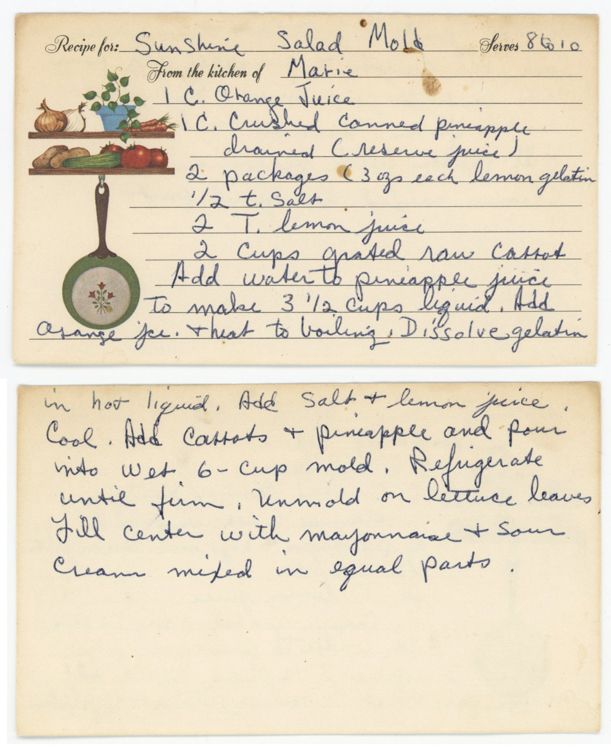 Recipe for: Sunshine Salad Mold Serves 8 to 10
From the kitchen of Marie
1 C. Orange Juice
1 C. Crushed canned pineapple
drained (reserve juice)
2 packages (3 ozs each lemon gelatin
1/2 t. Salt
2 T. lemon juice
2 cups grated raw carrot
Add water to pineapple juice
to make 3 1/2 cups liquid. Add
orange jce. + heat to boiling. Dissolve gelatin
in hot liquid. Add Salt + lemon juice.
Cool. Add carrots + pineapple and pour
into wet 6-cup mold. Refrigerate
until firm. Unmold on lettuce leaves
Fill center with mayonnaise + Sour
Cream mixed in equal parts.